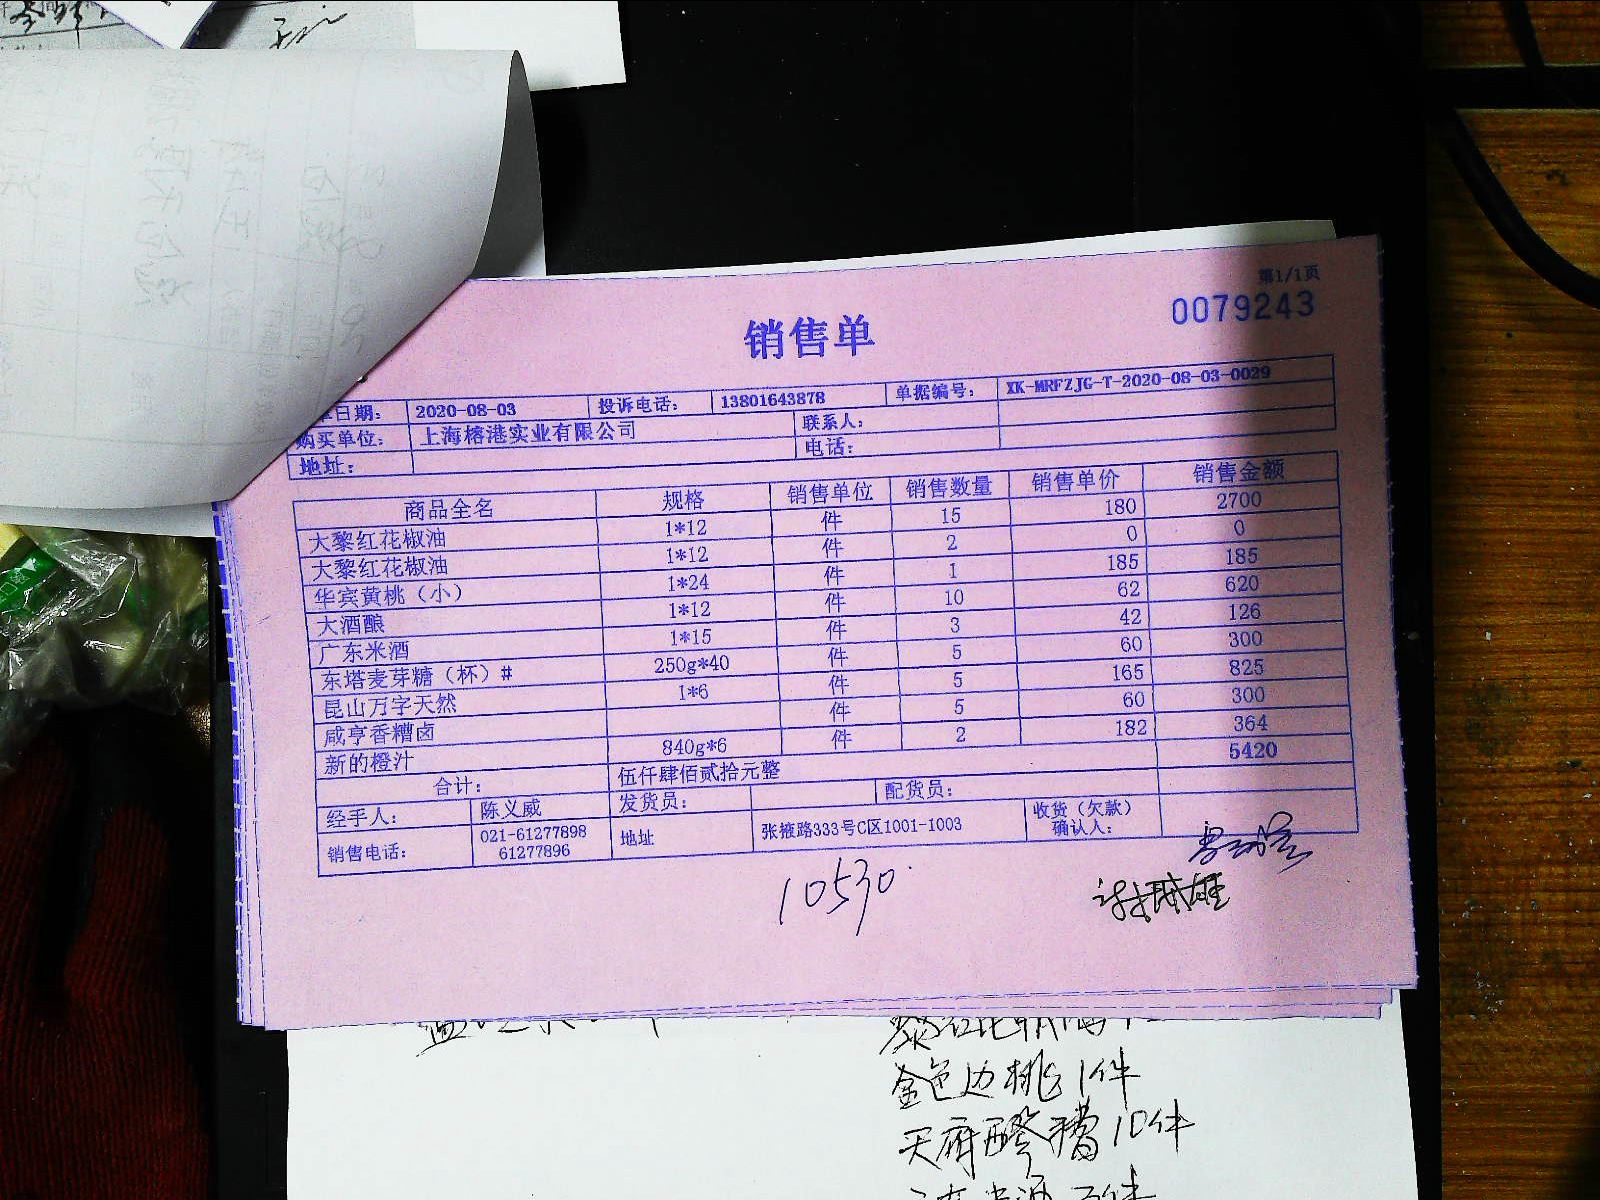 第1/1页
0079243
销售单
日期： 2020-08-03 投诉电话： 13801643878 单据编号： XK-MRFZJG-T-2020-08-03-0029
购买单位： 上海榕港实业有限公司 联系人：
地址： 电话：
商品全名 规格 销售单位 销售数量 销售单价 销售金额
大黎红花椒油 1*12 件 15 180 2700
大黎红花椒油 1*12 件 2 0 0
华宾黄桃（小） 1*24 件 1 185 185
大酒酿 1*12 件 10 62 620
广东米酒 1*15 件 3 42 126
东塔麦芽糖（杯）# 250g*40 件 5 60 300
昆山万字天然 1*6 件 5 165 825
咸亨香糟卤 件 5 60 300
新的橙汁 840g*6 件 2 182 364
合计： 伍仟肆佰贰拾元整 5420
经手人： 陈义威 发货员： 配货员：
销售电话： 021-61277898 61277896 地址 张掖路333号C区1001-1003 收货（欠款）确认人：
10530
金色边桃1件
天府醪糟10件